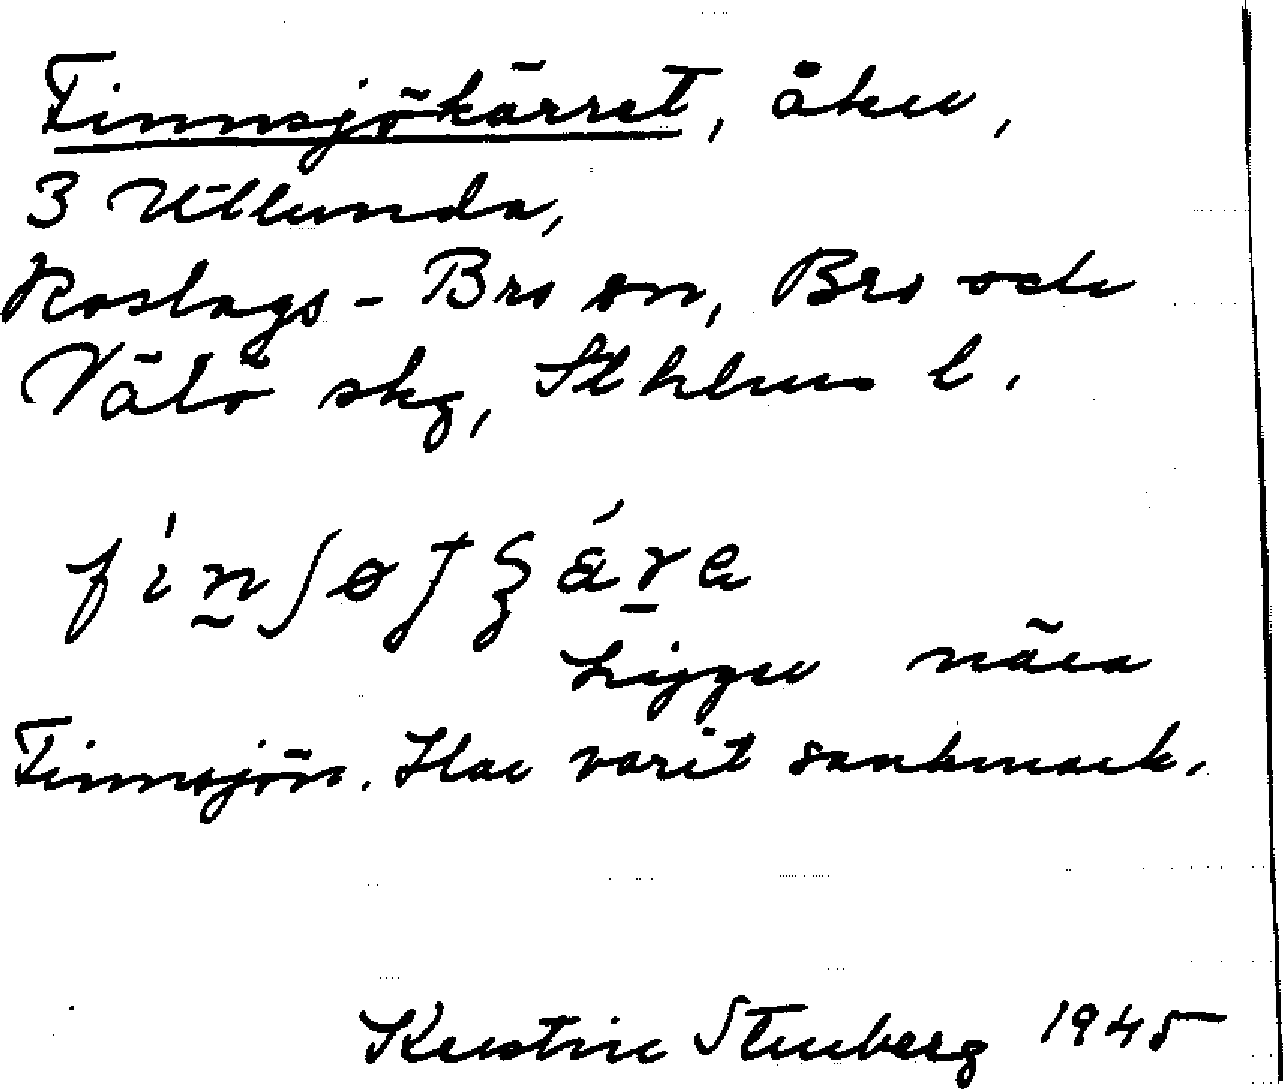 Finnsjökärret, åker,
3 Ullunda,
Roslags-Bro sn, Bro och
Vätö skg, Sthlms l.
Ligger nära
Finnsjön. Har varit sankmark.
Kerstin Stenberg 1945